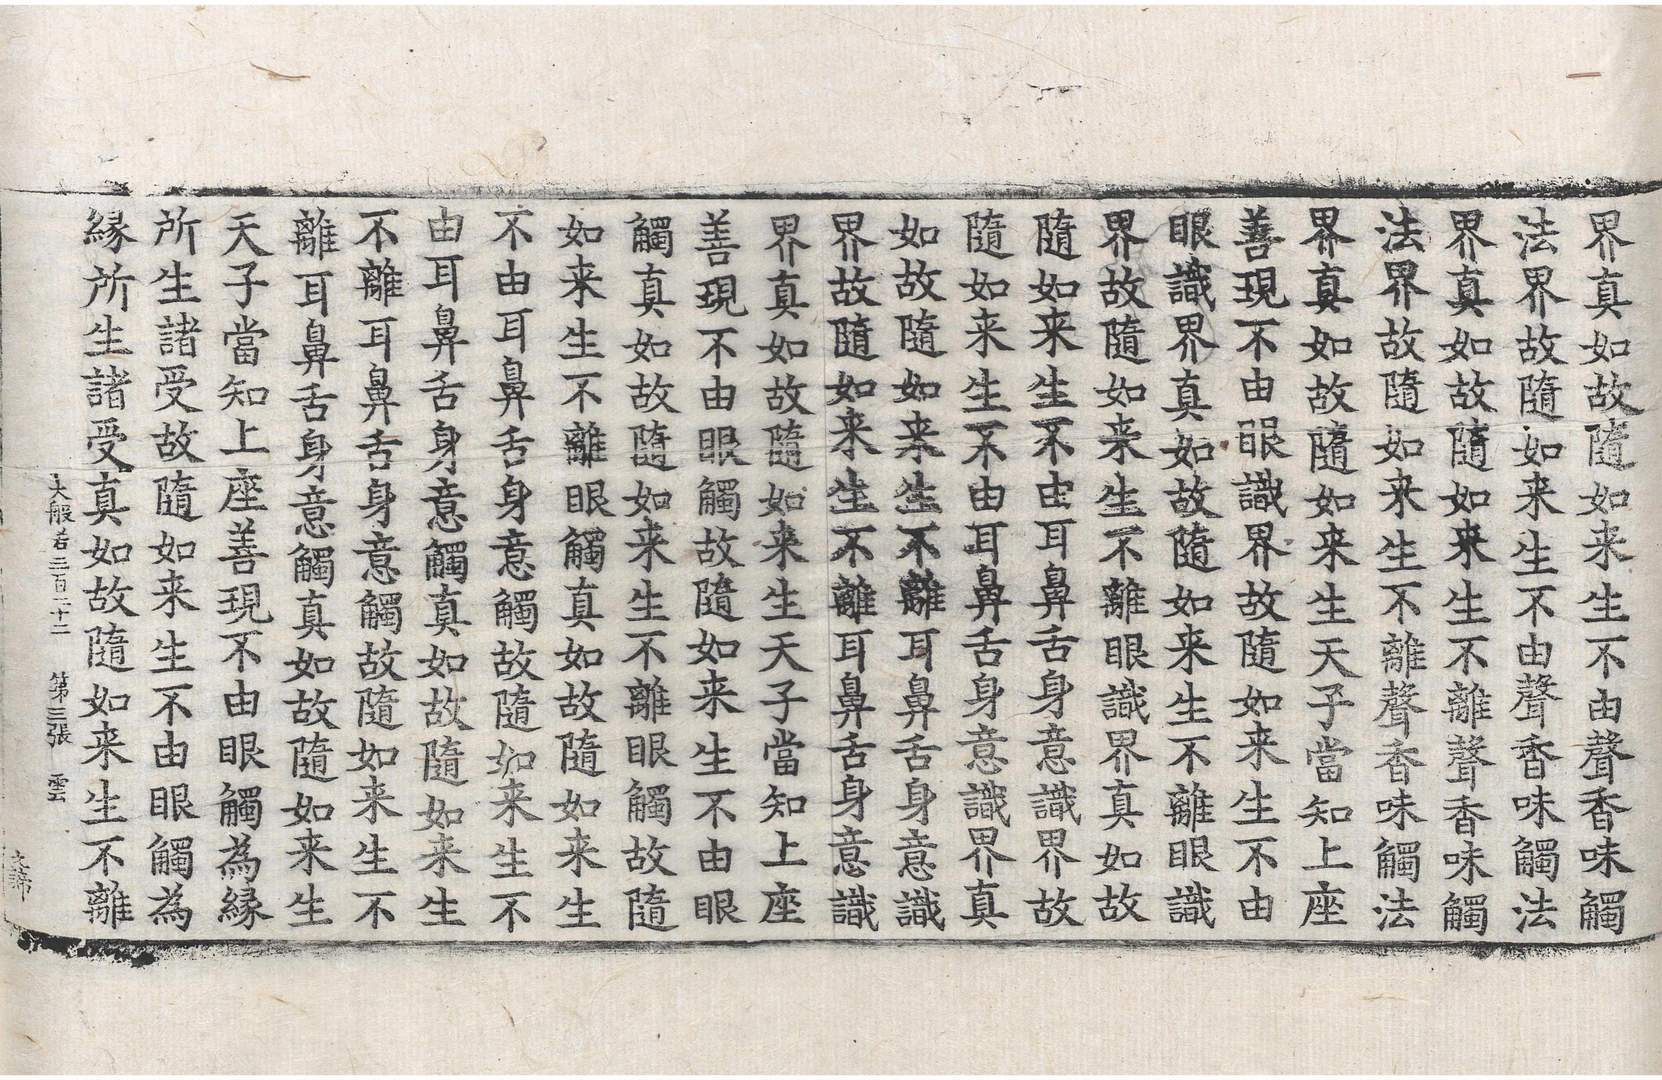 界真如故隨如来生不由聲香味觸
法界故隨如来生不由聲香味觸法
界真如故隨如来生不離聲香味觸
法界故隨如来生不離聲香味觸法
界真如故隨如来生天子當知上座
善現不由眼識界故隨如来生不由
眼識界真如故隨如来生不離眼識
界故隨如来生不離眼識界真如故
隨如来生不由耳鼻舌身意識界故
隨如来生不由耳鼻舌身意識界真
如故隨如来生不離耳鼻舌身意識
界故隨如来生不離耳鼻舌身意識
界真如故隨如来生天子當知上座
善現不由眼觸故隨如来生不由眼
觸真如故隨如来生不離眼觸故隨
如来生不離眼觸真如故隨如来生
不由耳鼻舌身意觸故隨如来生不
由耳鼻舌身意觸真如故隨如来生
不離耳鼻舌身意觸故隨如来生不
離耳鼻舌身意觸真如故隨如来生
天子當知上座善現不由眼觸為縁
所生諸受故隨如来生不由眼觸為
縁所生諸受真如故隨如来生不離
大般若三百二十二 第三張 雲